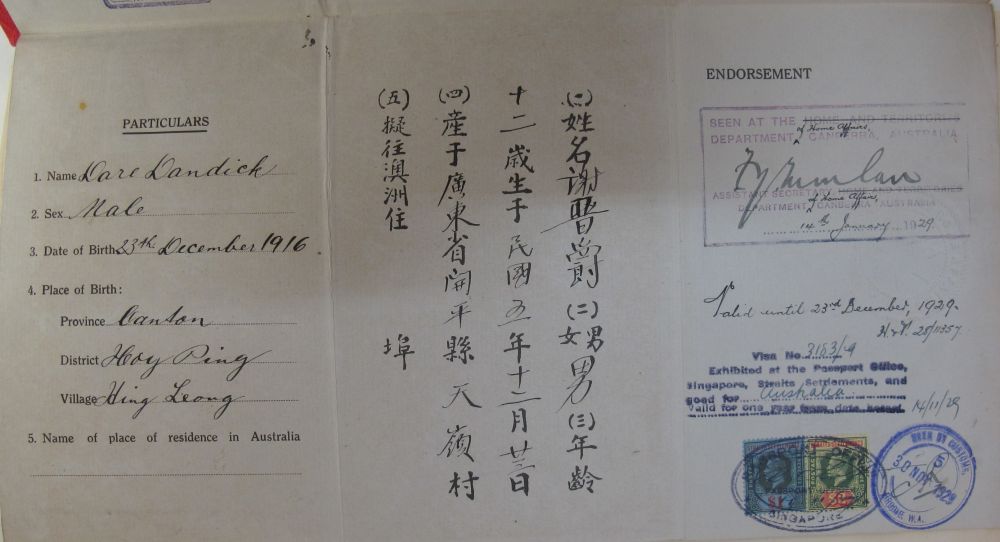 PARTICULARS
1. Name Dare Dandick
2. Sex Male
3. Date of Birth 23rd December 1916
4. Place of Birth:
Province Canton
District Hoy Ping
Village Hing Leong
5. Name of place of residence in Australia
(一)姓名謝晋爵(二)男女男(三)年齡
十二歲生于民國五年十二月廿三日
(四)産于廣東省開平縣天嶺村
(五)擬往澳洲住 埠
ENDORSEMENT
SEEN AT THE HOME AND TERRITORIES
of Home Affairs,
DEPARTMENT, CANBERRA, AUSTRALIA
ASSISTANT SECRETARY HOME AND TERRITORIES
of Home Affairs,
DEPARTMENT, CANBERRA AUSTRALIA
14th January 1929
Valid until 23rd December, 1929.
Visa No. 3183/29
Exhibited at the Passport Office,
Singapore, Straits Settlements, and
good for Australia
Valid for one year from date hereof. 14/11/29
PASSPORT OFFICE
SINGAPORE
$1
SEEN BY CUSTOMS
5
30 NOV 1929
BROOME. W.A.